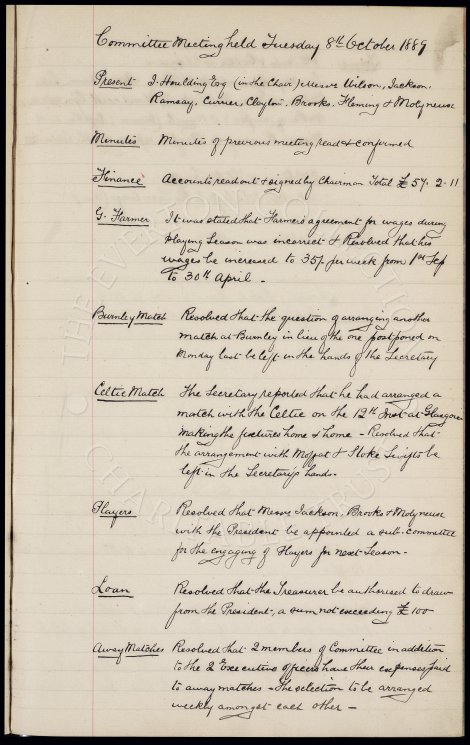 Committee Meeting held Tuesday 8th October 1889
Present J. Houlding Esq (in the Chair) Messrs Wilson, Jackson,
Ramsay, Currier, Clayton, Brooks, Fleming & Molyneux
Minutes Minutes of previous meeting read & confirmed
Finance Accounts read out & signed by Chairman Total £57.2.11
G. Farmer It was stated that Farmer's agreement for wages during
Playing Season was incorrect & Resolved that his
wages be increased to 35/- per week from 1st Sep
to 30th April.
Burnley Match Resolved that the question of arranging another
match at Burnley in lieu of the one postponed on
Monday last be left in the hands of the Secretary
Celtic Match The Secretary reported that he had arranged a
match with the Celtic on the 12th Inst at Glasgow
making the fixtures home & home - Resolved that
the arrangement with Moffat & Stoke Swifts be
left in the Secretary's hands.
Players Resolved that Messrs Jackson, Brooks & Molyneux
with the President be appointed a sub-committee
for the engaging of Players for next Season -
Loan Resolved that the Treasurer be authorised to draw
from the President, a sum not exceeding £100
Away Matches Resolved that 2 members of Committee in addition
to the 2 Executive officers have their expenses paid
to away matches - The selection to be arranged
weekly amongst each other -
THE EVERTON COLLECTION
CHARITABLE TRUST